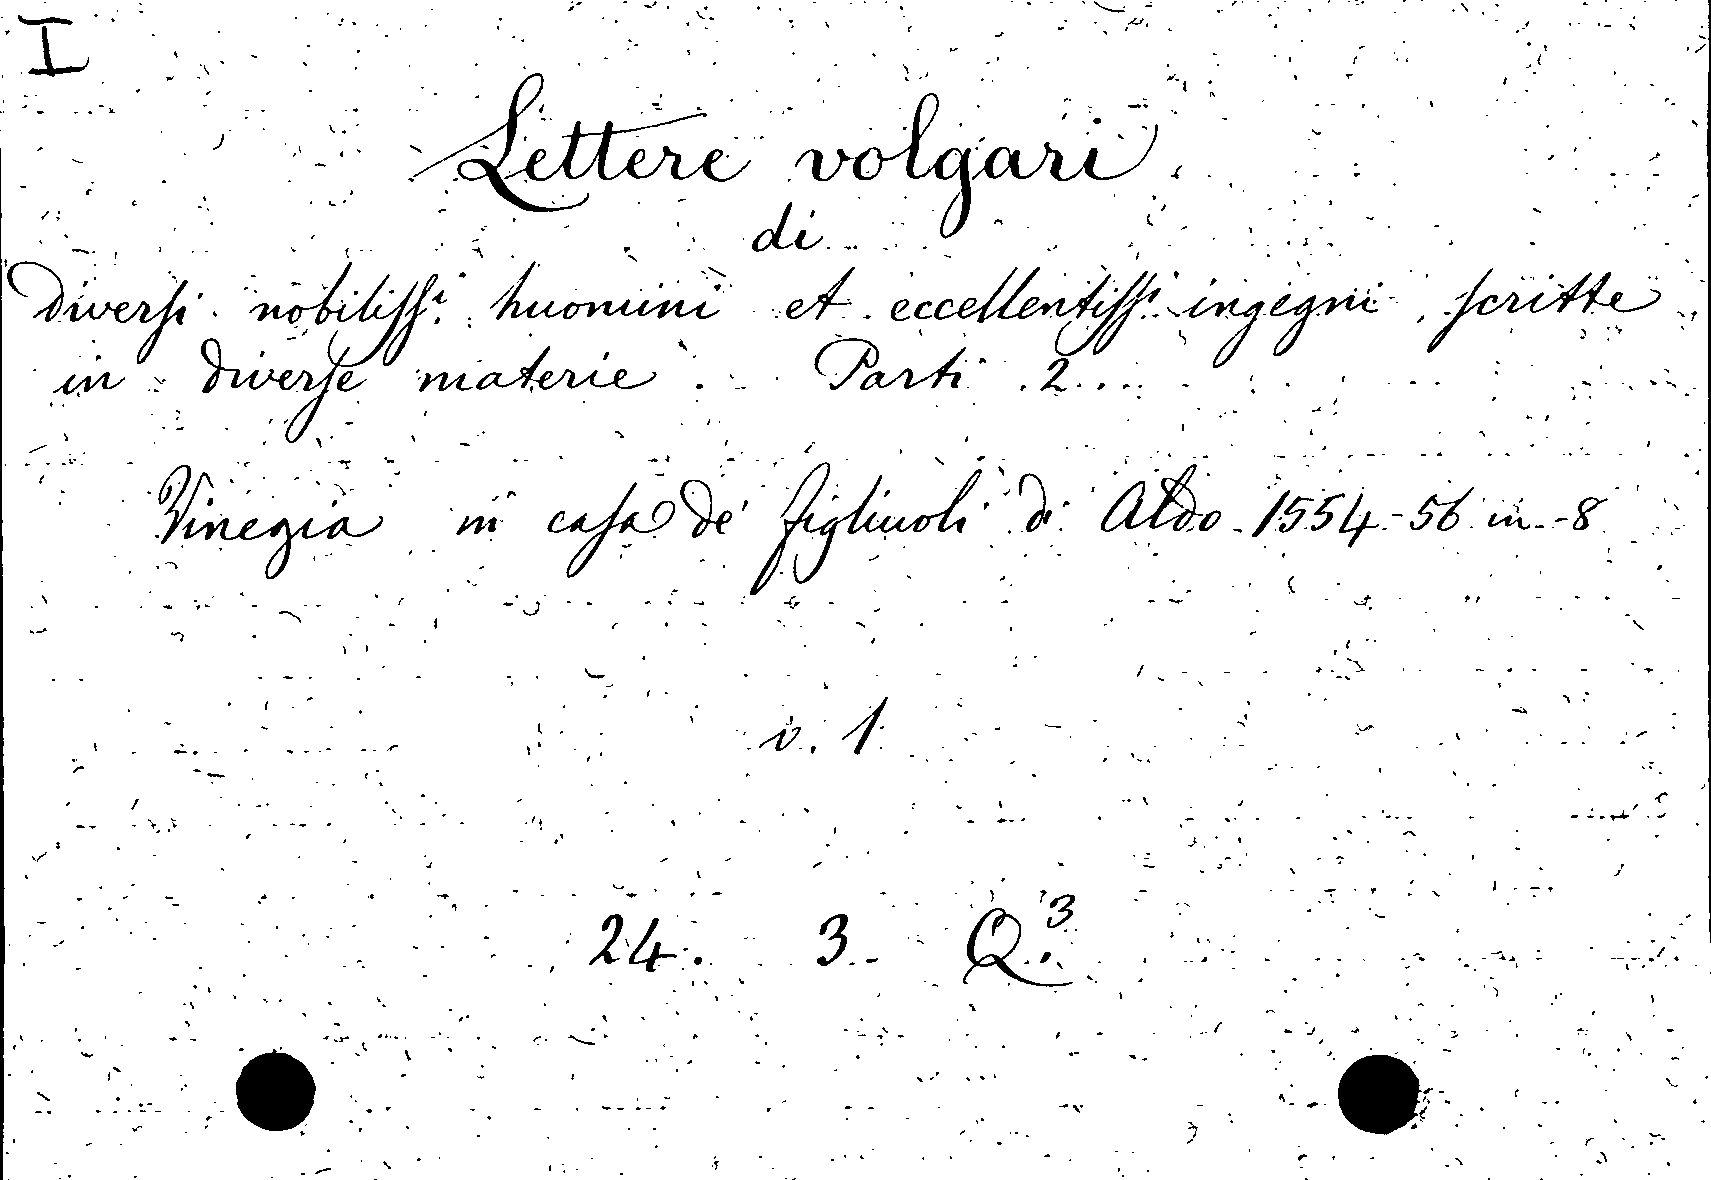 I
Lettere volgari
di
diversi nobiliss.i huomini et eccellentiss.i ingegni, scritte
in diverse materie. Parti 2.
Vinegia in casa de' figliuoli di Aldo 1554-56 in-8
v. 1
24. 3. Q.3